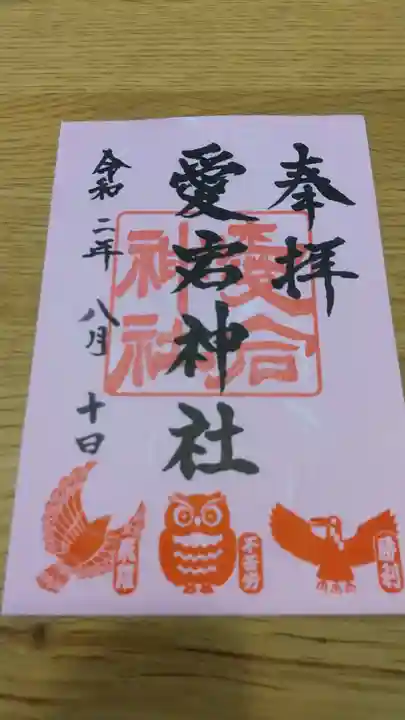 奉拝
愛宕神社
令和二年 八月 十日
愛宕
神社
飛躍
不苦労
勝利